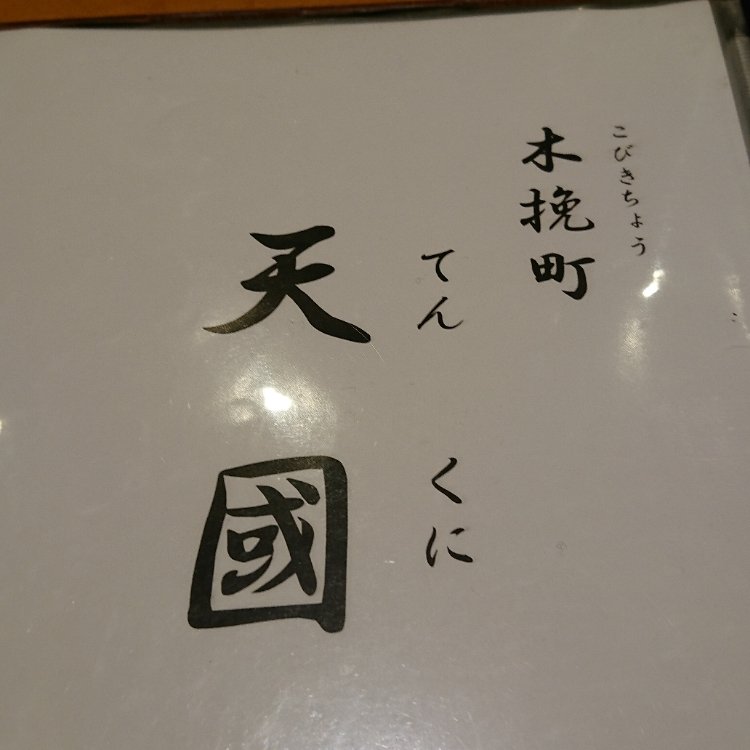 こびきちょう
木挽町
てんくに
天國